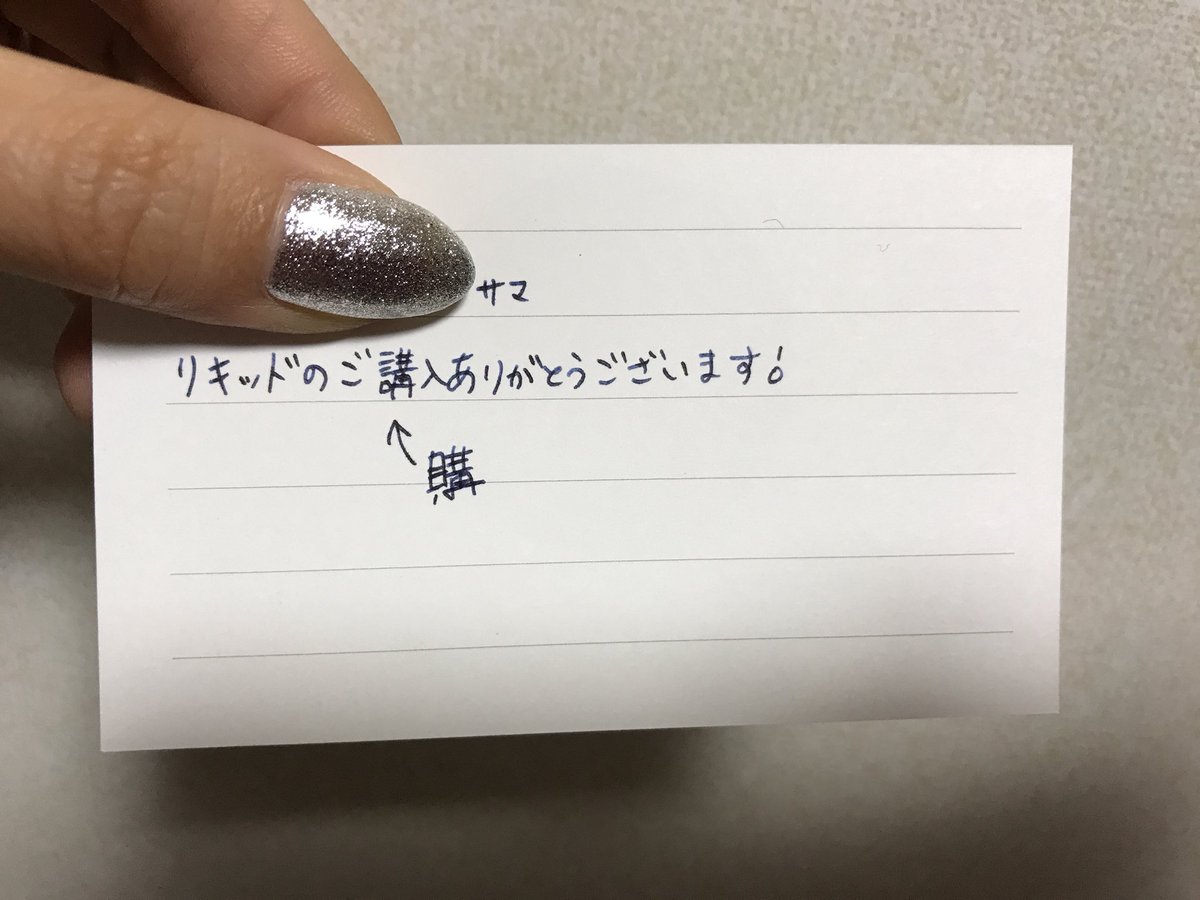 サマ
リキッドのご講入ありがとうございます!
↑
購